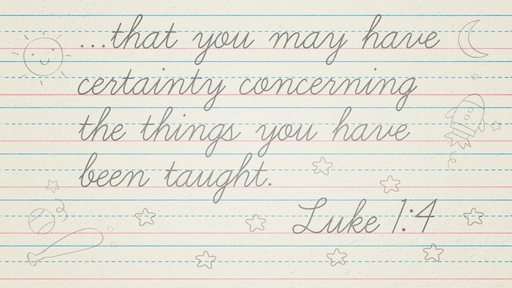 ...that you may have
certainty concerning
the things you have
been taught.
Luke 1:4